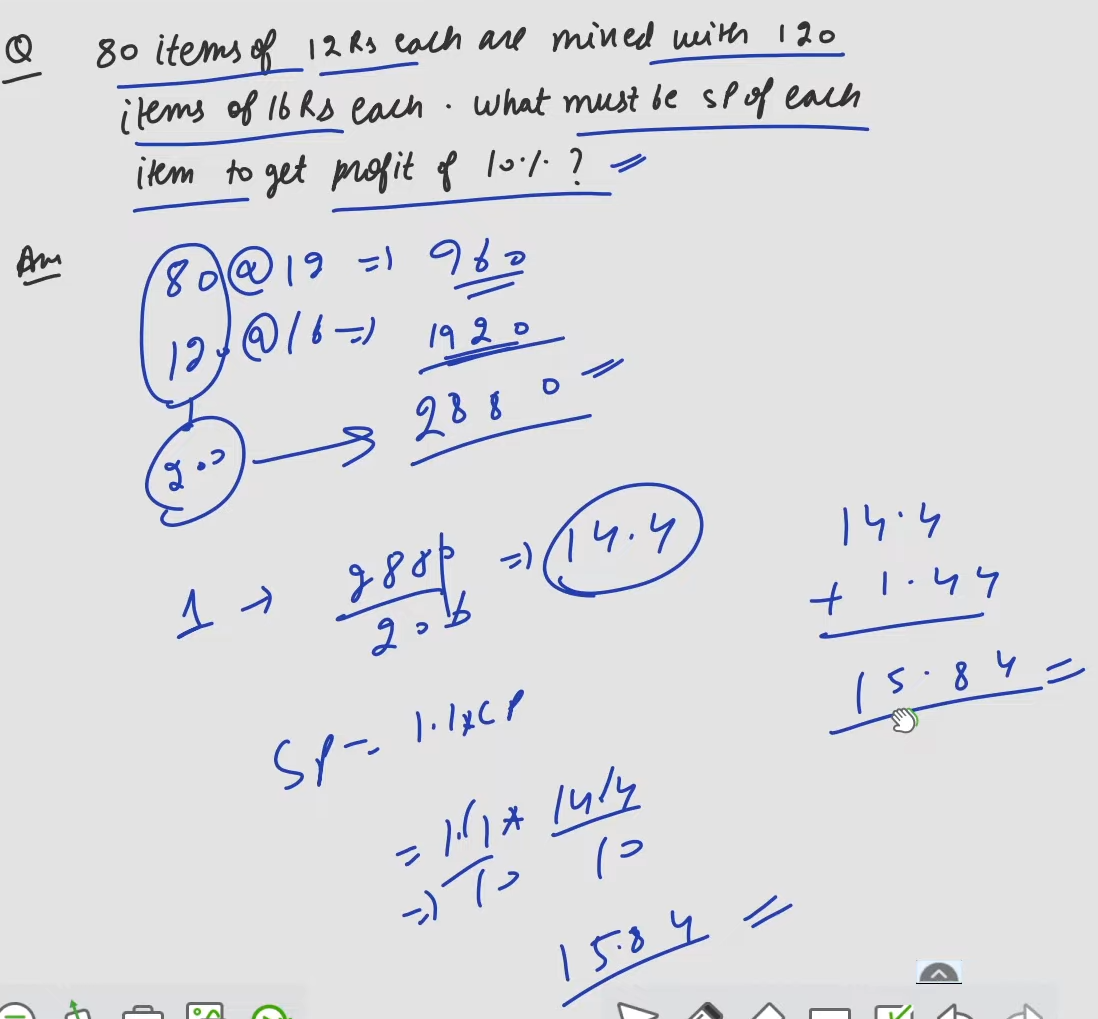 Q 80 items of 12 Rs each are mixed with 120
items of 16 Rs each. What must be SP of each
item to get profit of 10% ?
Ans
80 @ 12 => 960
120 @ 16 => 1920
200 → 2880
1 → 2880/200 => 14.4
14.4
+ 1.44
15.84 =
SP = 1.1*CP
= 11/10 * 144/10
=> 15.84